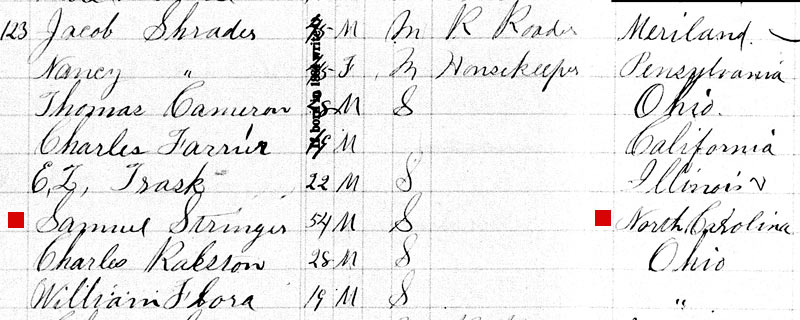 123 Jacob Shrader M M R Roader Meriland.
Nancy " F M Housekeeper Pensylvania
Thomas Cameron M S Ohio.
Charles Farrier M California
E. Z. Trask 22 M S Illinois
Samuel Stringer 54 M S North Carolina
Charles Ralston 28 M S Ohio
William Flora 19 M S "